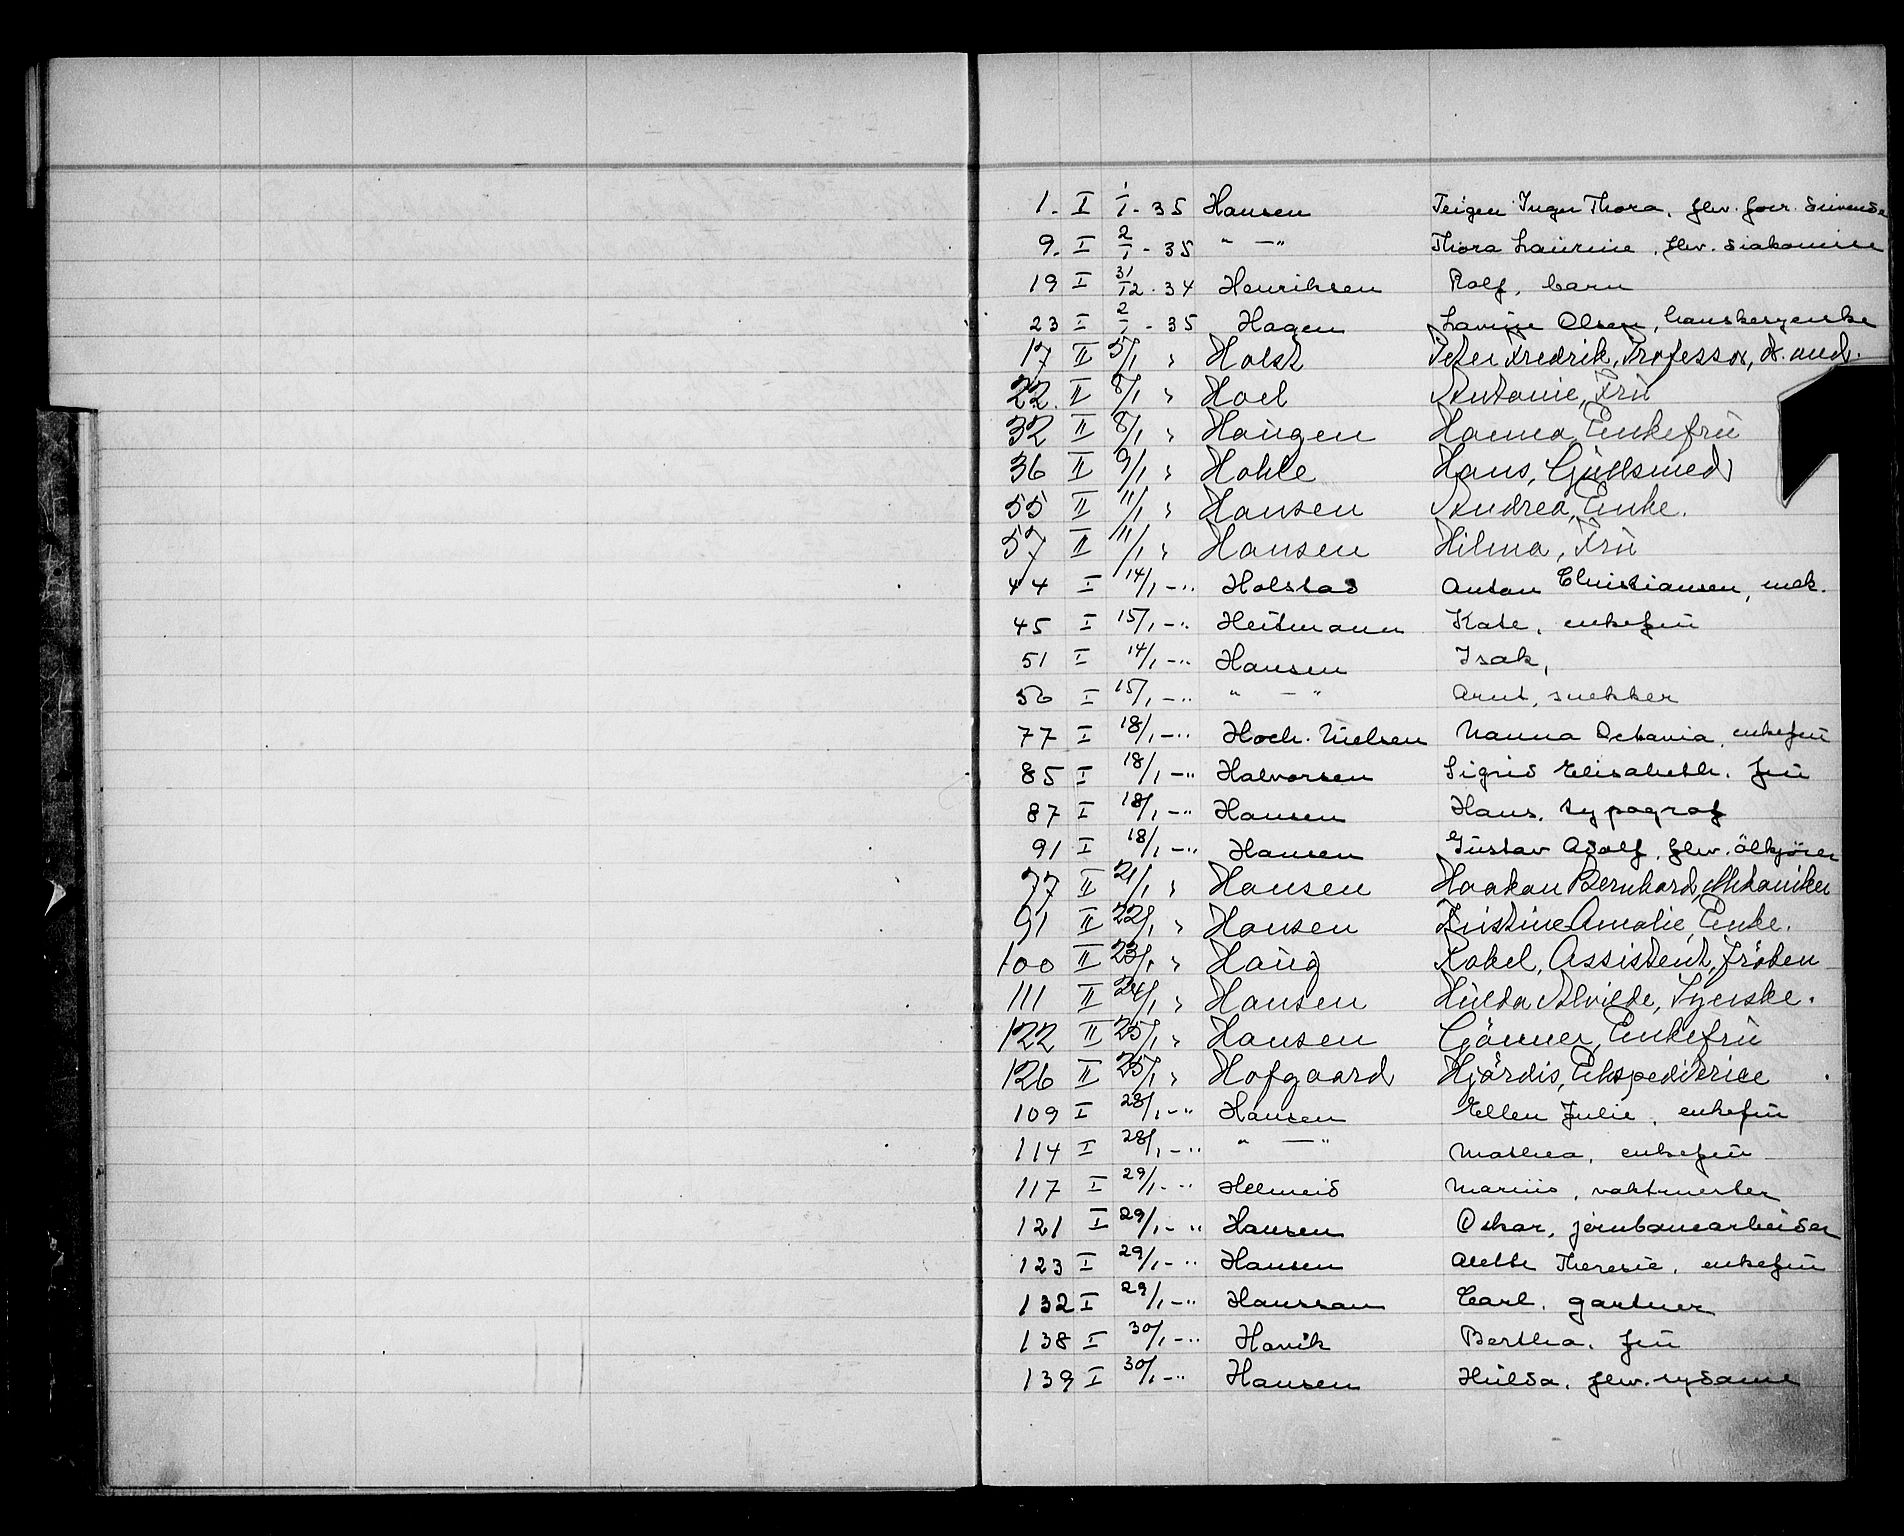 1. I 1/1 - 35 Hansen Teigen Inger Thora, flw. forr.
9. I 2/1 - 35 " — " Thora Laurine, flw. diakonisse
19 I 31/12 - 34 Henriksen Rolf, barn
23 I 2/1 - 35 Hagen Lavine Olsen, hanskesyerske
17 II 5/1 " Holst Peter Fredrik, Professor, d. med.
22. II 8/1 " Hoel Antonie, Frü
32 II 8/1 " Haugen Hanna, Enkefrü
36 II 9/1 " Hohle Hans, Güldsmed
55 II 11/1 " Hansen Andrea, Enke.
57 II 11/1 " Hansen Hilma, Frü
44 I 14/1 - " Holstad Anton Christiansen, mek.
45 I 15/1 - " Heitmann Kate, enkefrü
51 I 14/1 - " Hansen Isak,
56 I 15/1 - " " — " Arnt, snekker
77 I 18/1 - " Hoch-Nielsen Nanna Octavia, enkefrü
85 I 18/1 - " Halvorsen Sigrid Elisabeth, frü
87 I 18/1 - " Hansen Hans, typograf
91 I 18/1 - " Hansen Gustav Adolf, flw. ölkjører
77 II 21/1 " Hansen Haakon Bernhard, Mekaniker
91 II 22/1 " Hansen Kristine Amalie, Enke.
100 II 23/1 " Haug Rakel, Assistent, Fröken
111 II 24/1 " Hansen Hulda Alvilde, Syerske.
122 II 25/1 " Hansen Gönner, Enkefrü
126 II 25/1 " Hofgaard Hjördis, Ekspeditrice
109 I 28/1 - " Hansen Ellen Julie, enkefrü
114 I 28/1 - " " — " Mathea, enkefrü
117 I 29/1 - " Helmeid Marius, vaktmester
121 I 29/1 - " Hansen Oskar, jernbanearbeider
123 I 29/1 - " Hansen Alette Theresie, enkefrü
132 I 29/1 - " Hanssan Carl, gartner
138 I 30/1 - " Havik Bertha, frü
139 I 30/1 - " Hansen Hulda, flw. sydame